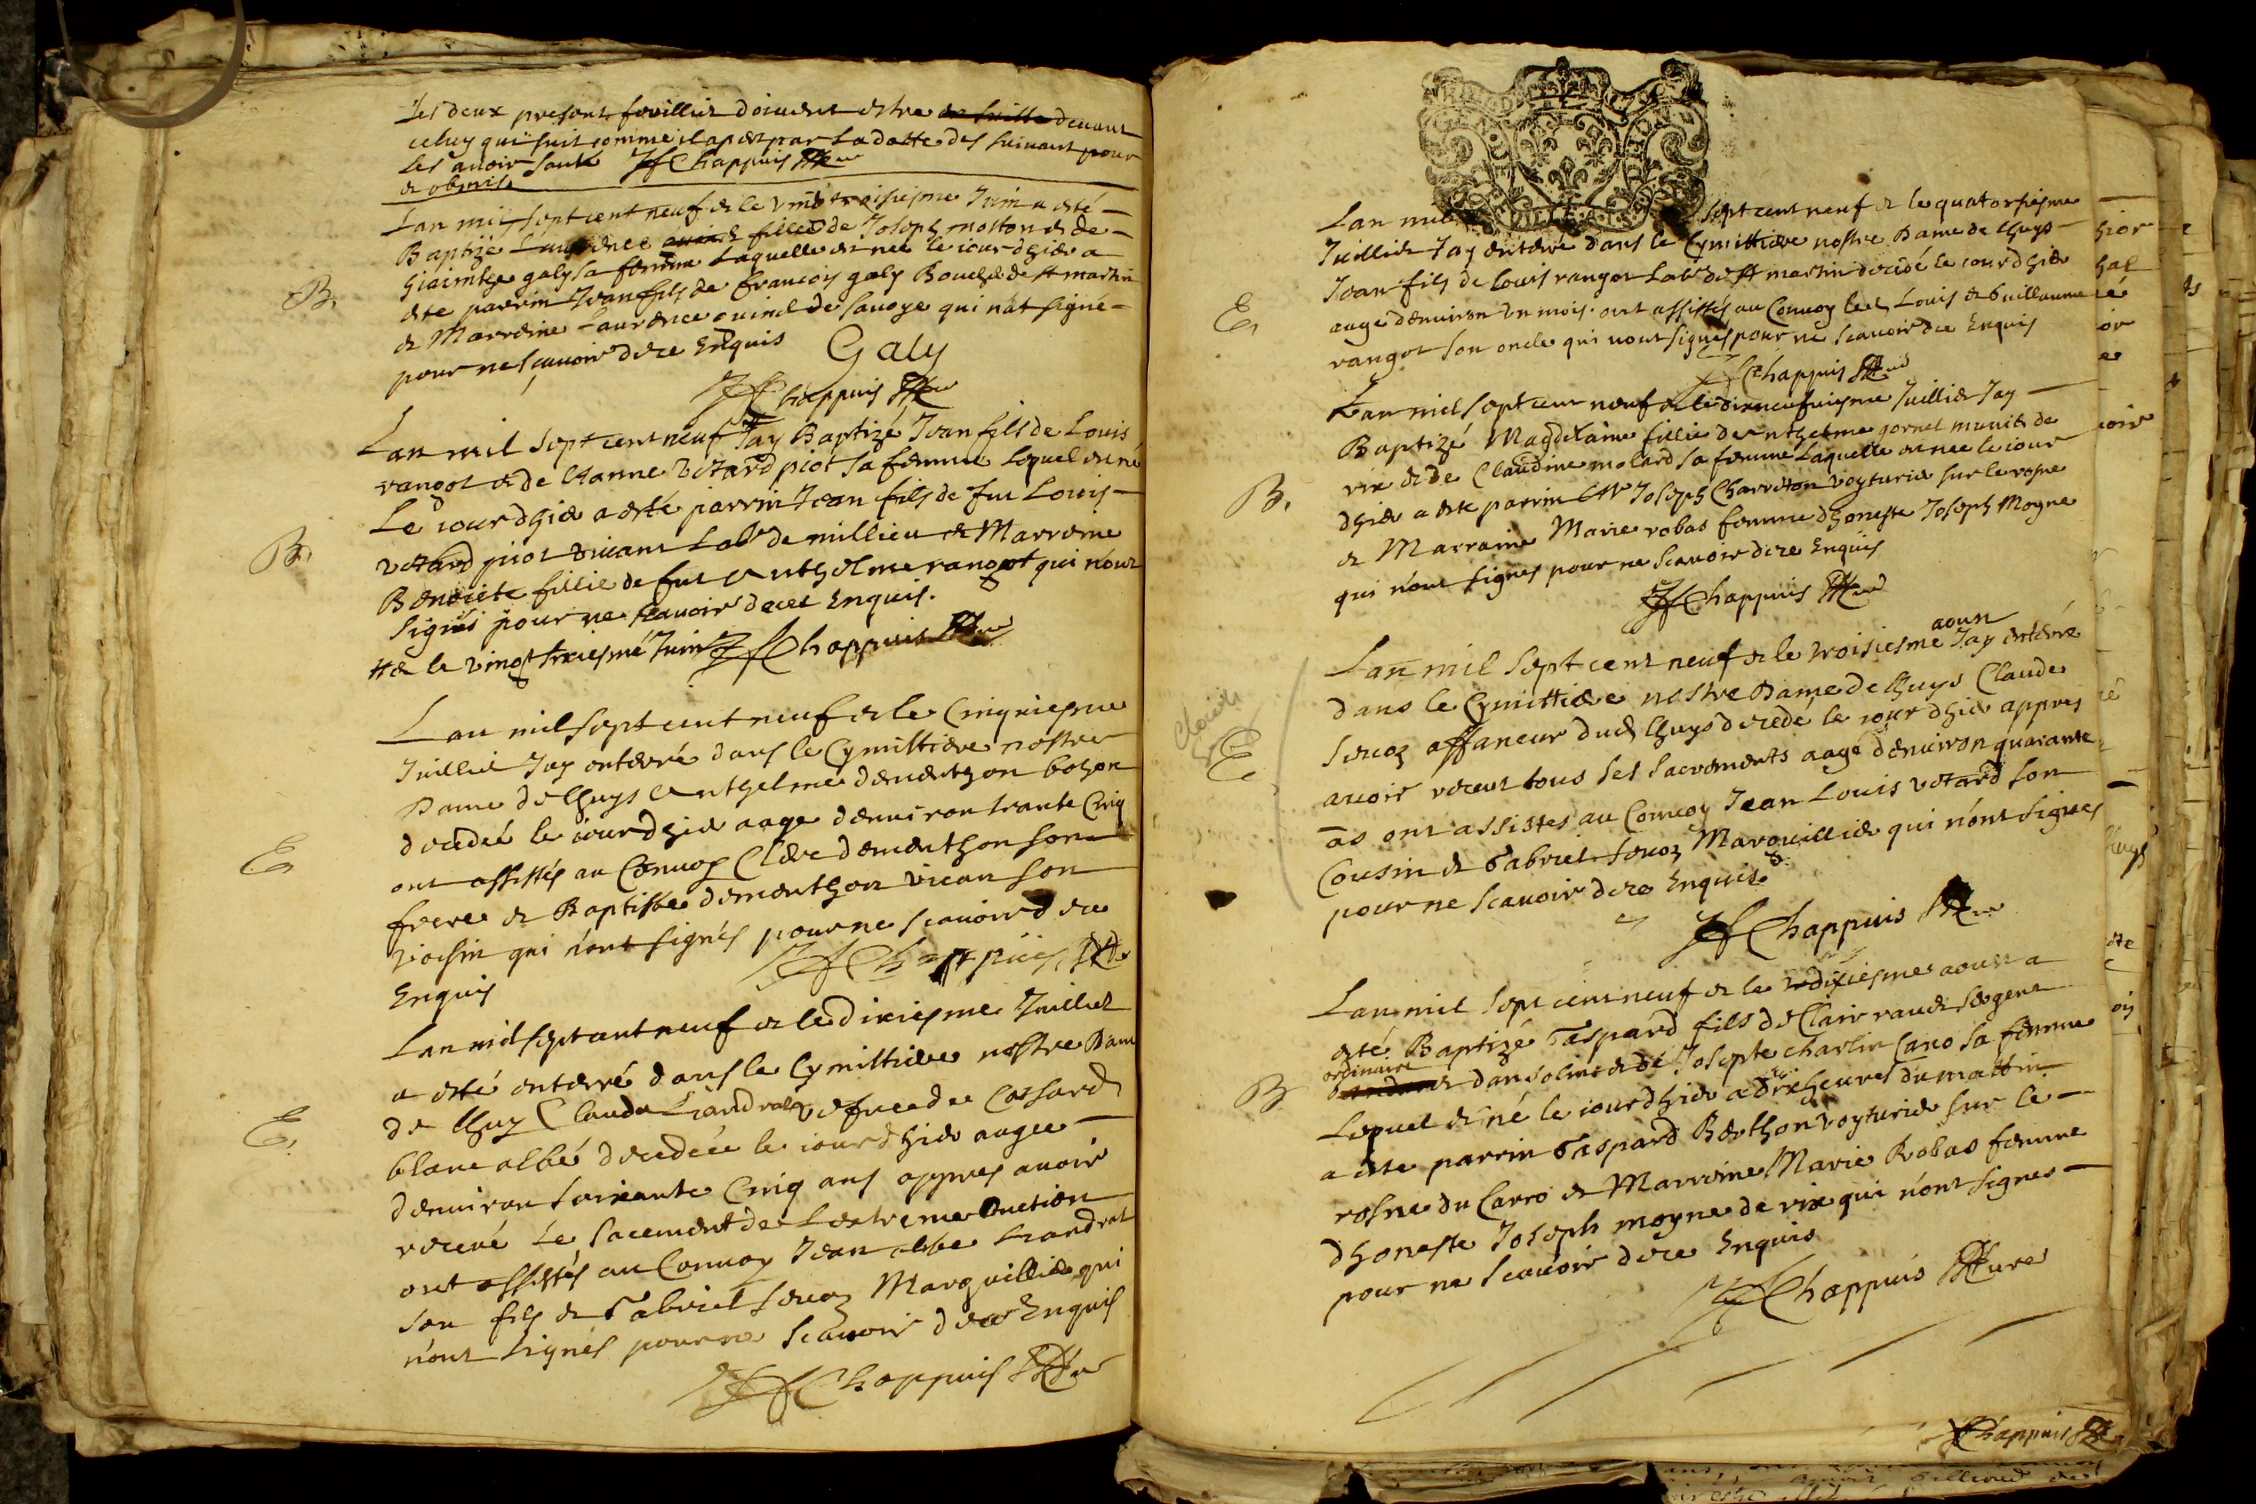 Les deux present fevilliet doivent estre devant
celuy qui suit comme il apert par La datte des suivant pour
Les avoir sauté JfChappuis
et obmis
Lan mil sept cent neuf et le vint troisiesme Juin a esté
B.
Baptizé Laurence fillie de Joseph motton et de
hiacinthe galy sa femme Laquelle est née le iour dhier a
este parrin Jean fils de francoy galy Boucher de st martin
et Marreine Laurence de savoye qui nat signe
pour ne scavoir de ce Enquis Galy
JfChappuis
Lan mil sept cent neuf Jay Baptizé Jean fils de Louis
rangot et de Anne vetard piot sa femme Lequel est né
Le iour dhier a esté parrin Jean fils de fut Louis
B.
vetard piot vivant Labr de millieu et Marreine
Benoicte fillie de fut Anthelme rangot qui n'ont
signés pour ne scavoir de ce Enquis.
et le vingt sixiesme Juin JfChappuis
Lan mil sept cent neuf et le Cinquiesme
Juilliet Jay enterré dans le Cymittiere nostre
Dame de lhuys Anthelme dementhon bozon
E
decedé le iour dhier aagé denviron trante Cinq
ont assistés au Convoy Clere dementhon son
frere et Baptiste dementhon vivan son
voisin qui n'ont signés pour ne scavoir de ce
Enquis JfChappuis
Lan mil sept cent neuf et le dixiesme Juilliet
a esté enterré dans le Cymittiere nostre Dam
de lhuy Clauda
E.
blanc albé decedée le iour dhier aagée
denviron soixante Cinq ans appres avoir
receue Le sacement de Lextreme onction
ont assistés au Convoy Jean albe
son fils et Gabriel sevoz Marguillier qui
n'ont signés pour ne scavoir de ce Enquis
JfChappuis
Lan mil sept cent neuf et le quatorsiesme
Juilliet Jay enterré dans le Cymittiere nostre Dame de lhuys
Jean fils de Louis rangot Labr de st martin decedé le iour dhier
E,
aagé denviron un mois. ont assistés au Convoy led Louis et Guillaume
rangot son oncle qui n'ont signés pour ne scavoir de ce Enquis
JfChappuis
Lan mil sept cent neuf et le dixneufviesme Juilliet Jay
Baptizé Magdelaine fillie de Anthelme gornet munier de
rix et de Claudine molard sa femme Laquelle est née le iour
B.
dhier a este parrin Joseph Charreton voyturier sur le rosne
et Marraine Marie robas femme dhoneste Joseph Moyne
qui n'ont signés pour ne scavoir de ce Enquis
JfChappuis
aoust
Lan mil sept cent neuf et le troisiesme Jay enterré
dans le Cymittiere nostre Dame de lhuys Claude
E
sevoz affaneur dud lhuys decede le iour dhier appres
avoir receut tous ses sacrements aagé denviron quarante
as ont assistes au Convoy Jean Louis vetard son
Cousin et Gabriel sevoz Marguillier qui n'ont signes
pour ne scavoir de ce Enquis
JfChappuis
Lan mil sept cent neuf et le dixiesme aoust a
esté Baptizé Gaspard fils de Clair sergent
ordinaire
B
et de Josepte charlin Cano sa femme
Lequel est né le iour dhier a dix heures du mattin
a este parrin Gaspard Berthon voyturier sur le
rosne du Carro et Marreine Marie Robas femme
dhoneste Joseph moyne de rix qui n'ont signes
pour ne scavoir de ce Enquis
JfChappuis Cure
JfChappuis